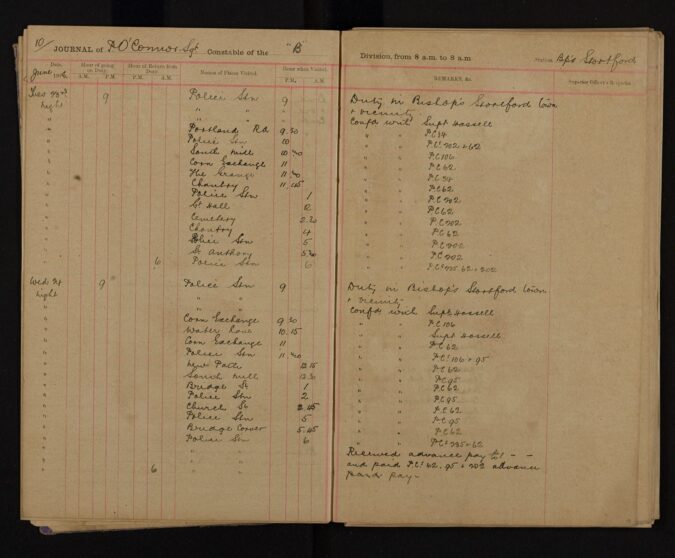 10/ JOURNAL of P O'Connor Sgt Constable of the "B"
Date. Hour of going on Duty. Hour of Return from Duty. Names of Places Visited. Hour when Visited.
June A.M. P.M. P.M. A.M. P.M. A.M.
Tues 23rd 9 Police Stn 9
night " "
" Portland Rd 9.30
" Police Stn 10
" South Mill 10.30
" Corn Exchange 11
" The Grange 11.30
" Chantry 11.45
" Police Stn 1
" St Hall 2
" Cemetery 2.30
" Chantry 4
" Police Stn 5
" St Anthony 5.30
" 6 Police Stn 6
Wed 24 9 Police Stn 9
night " "
" Corn Exchange 9.30
" Water Lane 10.15
" Corn Exchange 11
" Police Stn 11.30
" New Path 12.15
" South Mill 12.30
" Bridge St 1
" Police Stn 2
" Church St 2.45
" Police Stn 5
" Bridge Corner 5.45
" Police Stn 6
" " "
" 6 " "
Division, from 8 a.m. to 8 a.m. Station Bp's Stortford
REMARKS, &c. Superior Officer's Signature
Duty in Bishop's Stortford town
+ vicinity
Confd with Supt Hassell
" " PC 34
" " PCs 202 + 62
" " PC 106
" " PC 62
" " PC 34
" " PC 62
" " PC 202
" " PC 62
" " PC 202
" " PC 62
" " PC 202
" " PC 202
" " PCs 235 62 + 202
Duty in Bishop's Stortford town
+ vicinity
Confd with Supt Hassell
" " PC 106
" " Supt Hassell
" " PC 62
" " PCs 106 + 95
" " PC 62
" " PC 95
" " PC 62
" " PC 95
" " PC 62
" " PC 95
" " PC 62
" " PCs 235 + 62
Received advance pay
and paid PCs 62. 95 + 202 advance
pay -